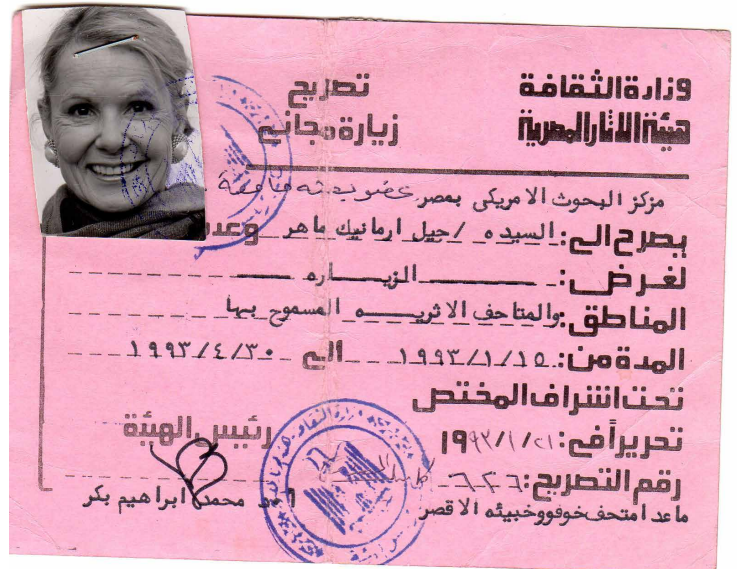 وزارة الثقافة
هيئة الاثار المصرية
تصريح
زيارة مجانية
مركز البحوث الامريكى بمصر
يصرح الى: السيده / جيل ارمانيك ماهر وعدد
لغرض: الزيــاره
المناطق: والمتاحف الاثريـــه المسموح بها
المدة من: ١٩٩٣/١/١٥ الى ١٩٩٣/٤/٣٠
تحت اشراف المختص
تحريراً فى: ١٩٩٣/١/٢١
رئيس الهيئة
رقم التصريح:
أ.د محمد ابراهيم بكر
ماعدا متحف خوفو وخبيئه الاقصر